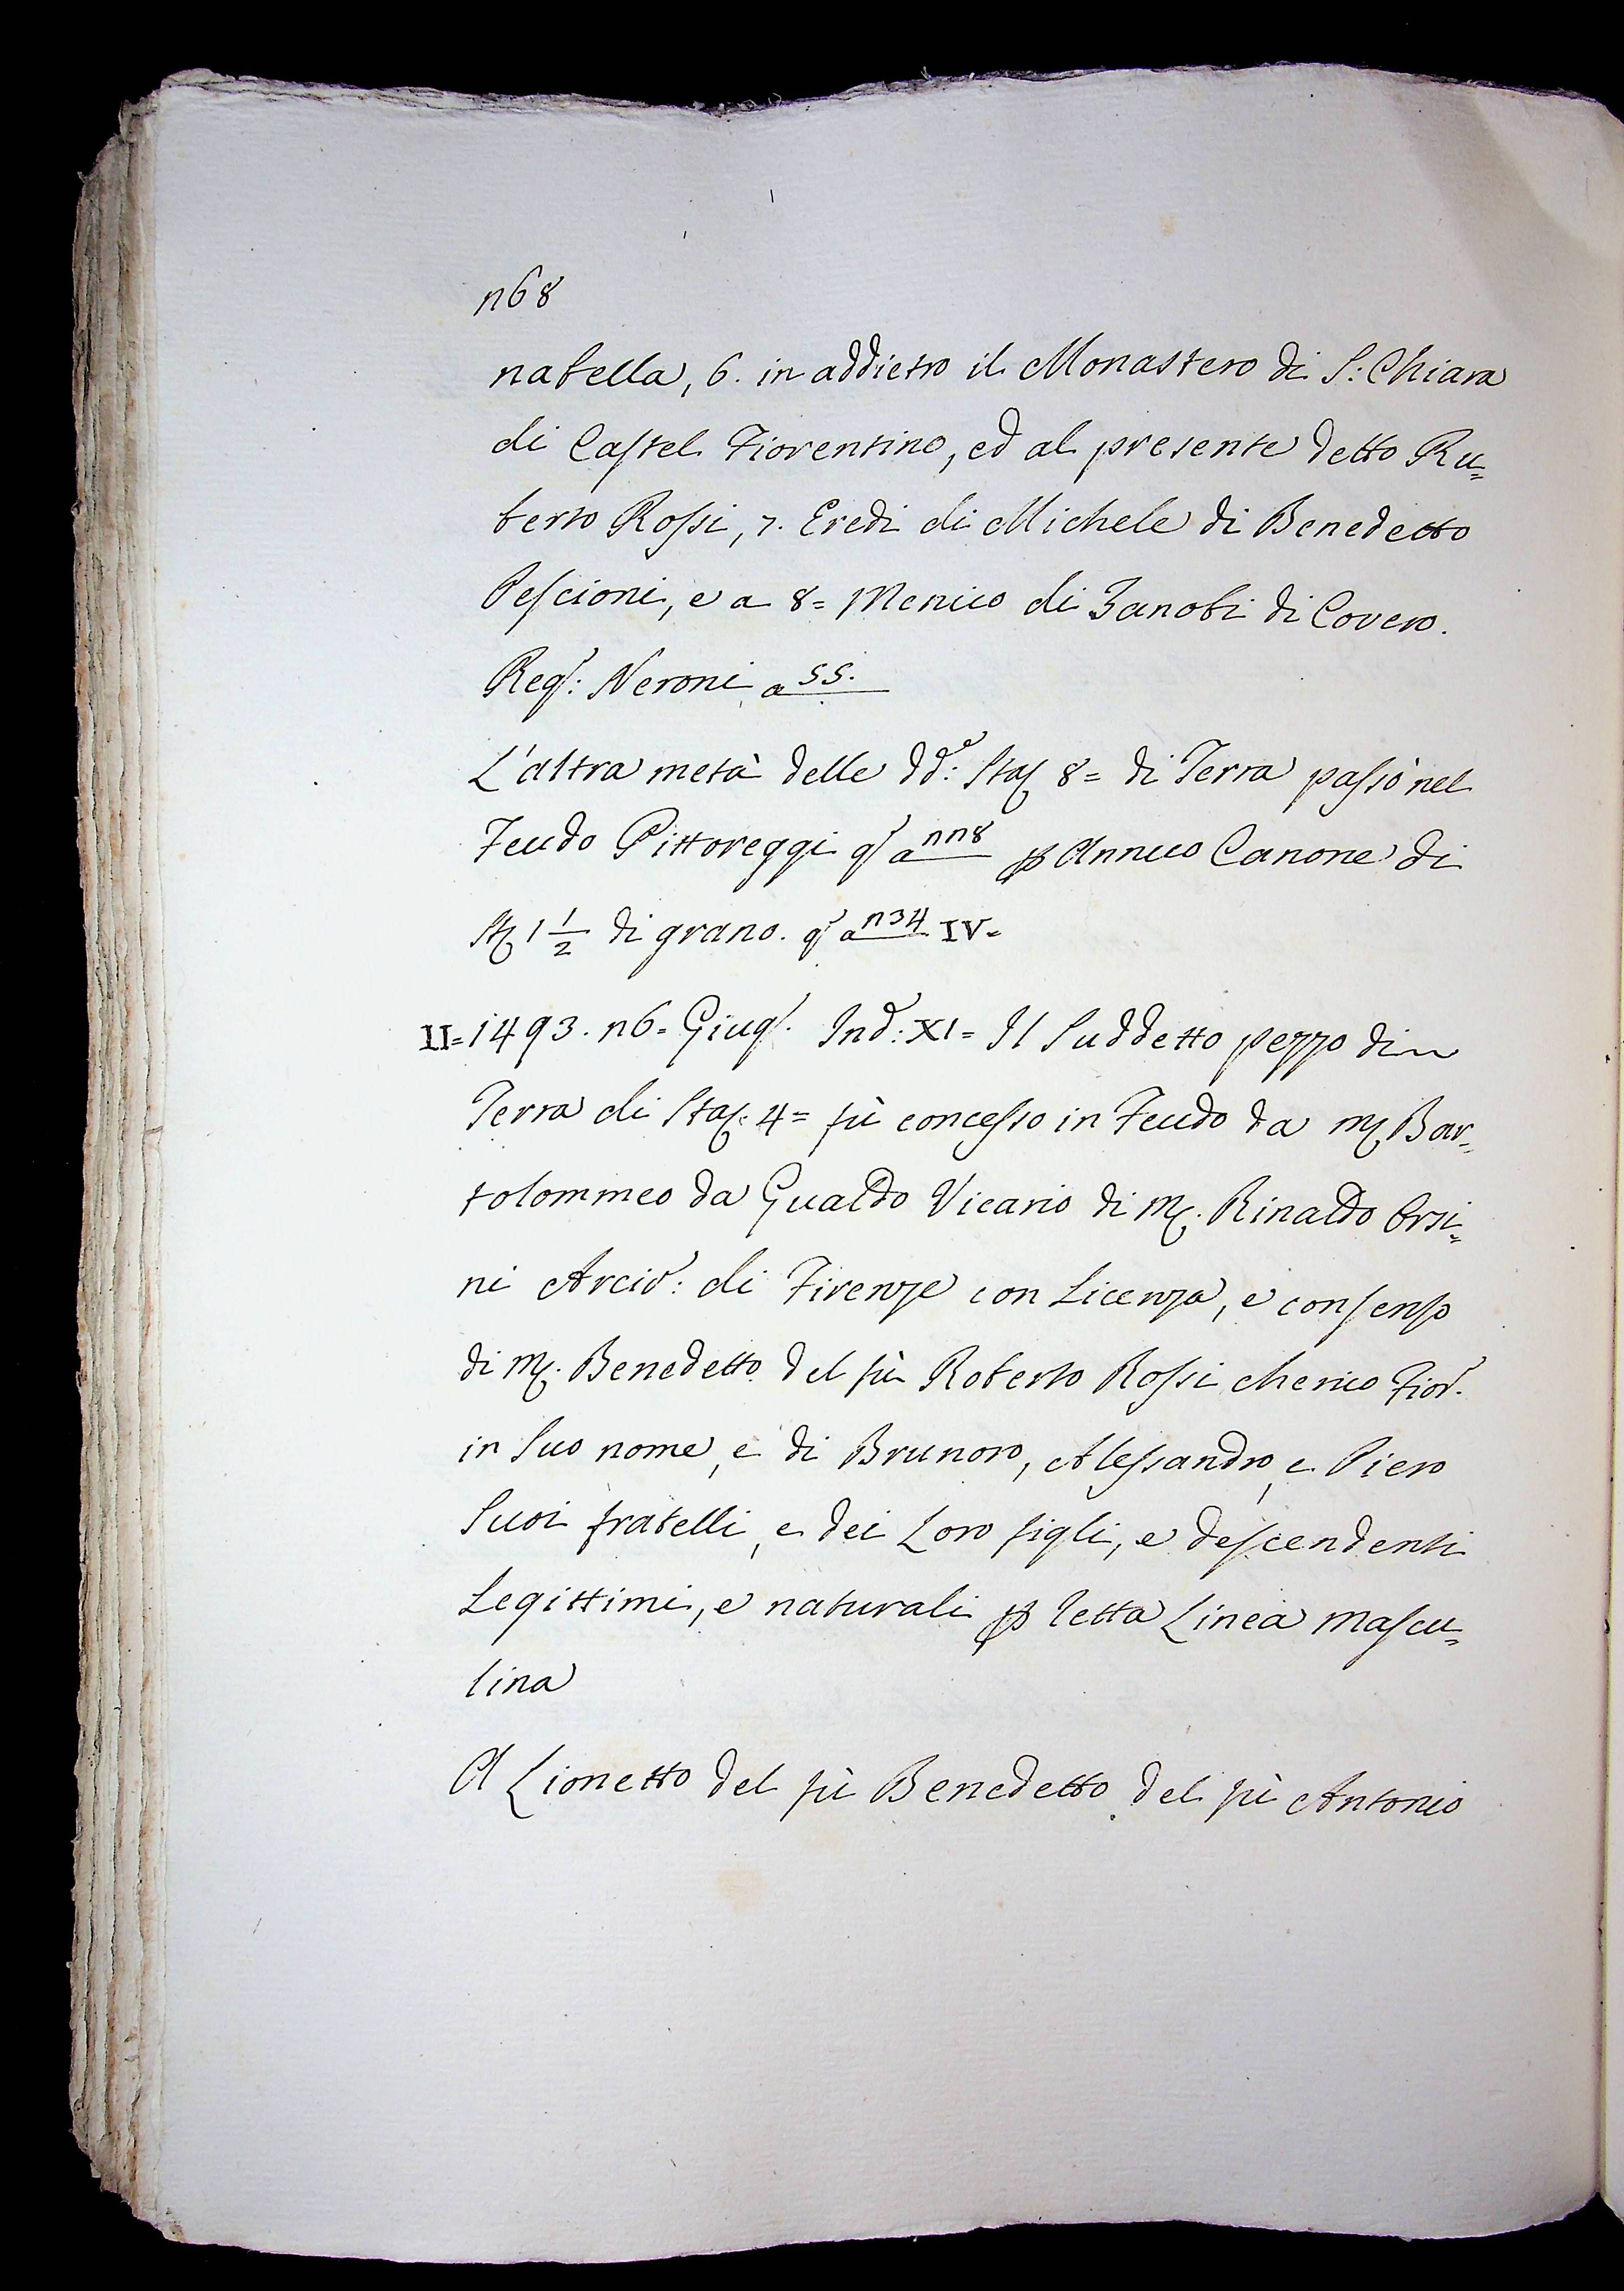 168
nabella, 6. in addietro il Monastero di S: Chiara
di Castel Fiorentino, ed al presente detto Ru=
berto Rossi, 7. Eredi di Michele di Benedetto
Pescioni, e a 8= Menico di Zanobi di Covero.
Reg: Neroni a 55.
L'altra metà delle dd:e Staj 8= di Terra passò nel
Feudo Pittoreggi q a 118 p Annuo Canone di
St 1 1/2 di grano. q a 134 IV=
II= 1493. 16= Giug. Ind: XI= Il Suddetto pezzo di
Terra di Staj: 4= fù concesso in Feudo da M. Bar=
tolommeo da Gualdo Vicario di M. Rinaldo Orsi=
ni Arciv: di Firenze con Licenza, e consenso
di M. Benedetto del fù Roberto Rossi cherico Fior.
in Suo nome, e di Brunoro, Alessandro, e Piero
Suoi fratelli, e dei Loro figli, e descendenti
Legittimi, e naturali p retta Linea mascu=
lina
A Lionetto del fù Benedetto del fù Antonio